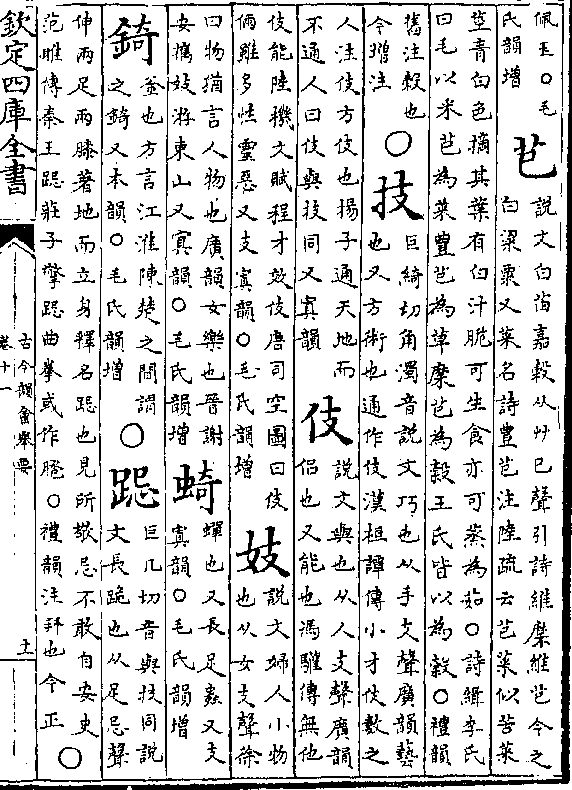 佩玉○毛
氏韻增
芑
說文白苗嘉穀从艸巳聲引詩維穈維芑今之
白粱粟又菜名詩豊芑注陸疏云芑菜似苦菜
莖青白色摘其葉有白汁脆可生食亦可蒸為茹○詩緝李氏
曰毛以采芑為菜豐芑為草穈芑為穀王氏皆以為穀○禮韻
舊注穀也
今增注
○技
巨綺切角濁音說文巧也从手支聲廣韻藝
也又方術也通作伎漢桓譚傳小才伎數之
人注伎方伎也揚子通天地而
不通人曰伎與技同又寘韻
伎
說文與也从人支聲廣韻
侣也又能也馮驩傳無他
伎能陸機文賦程才效伎唐司空圖曰伎
倆雖多性靈惡又支寘韻○毛氏韻增
妓
說文婦人小物
也从女支聲徐
曰物猶言人物也廣韻女樂也晉謝
安携妓游東山又寘韻○毛氏韻增
蟬也又長足蟲又支
寘韻○毛氏韻增
錡
釜也方言江淮陳楚之間謂
之錡又本韻○毛氏韻增
○跽
巨几切音與技同說
文長跪也从足忌聲
伸兩足兩膝著地而立身釋名跽忌也見所敬忌不敢自安史
范睢傳秦王跽莊子擎跽曲拳或作○禮韻注拜也今正
○
欽定四庫全書
古今韻會舉要
卷十一
十一